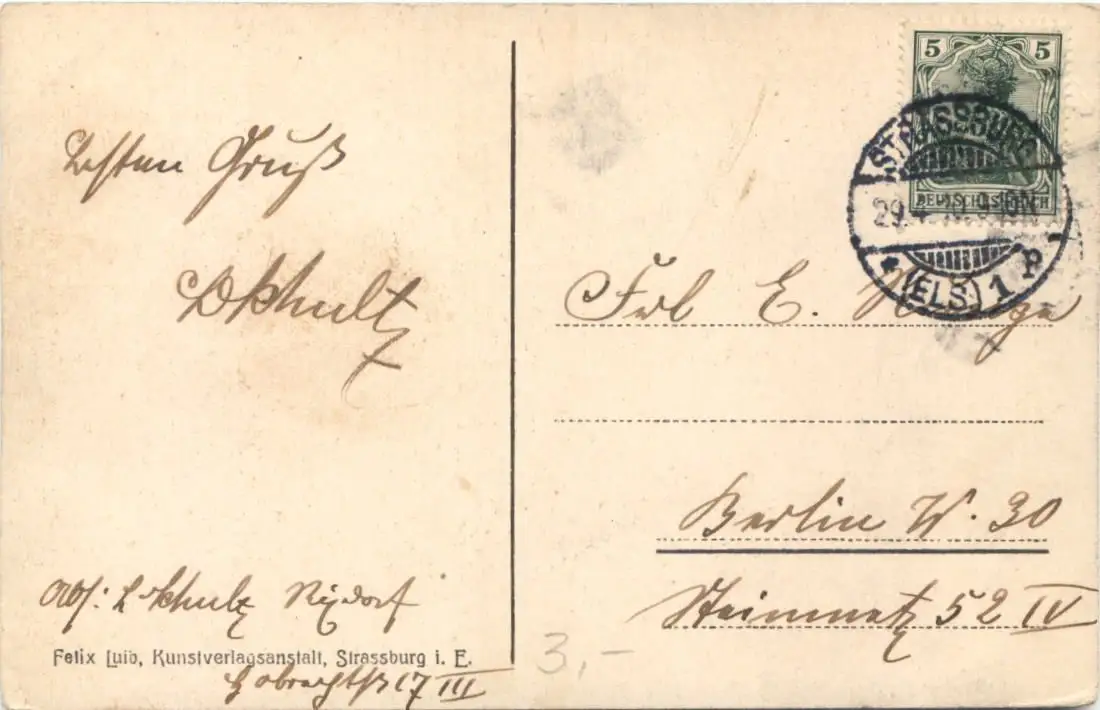 Besten Gruß
Frl E.
Berlin W. 30
Steinmetz 52 IV
Abs: Rixdorf
Felix Luib, Kunstverlagsanstalt, Strassburg i. E.
Hobrechtstr 17 III
5 5
DEUTSCHES REICH
STRASSBURG
29.4. 9-10N
* (ELS.) 1 P
3,-